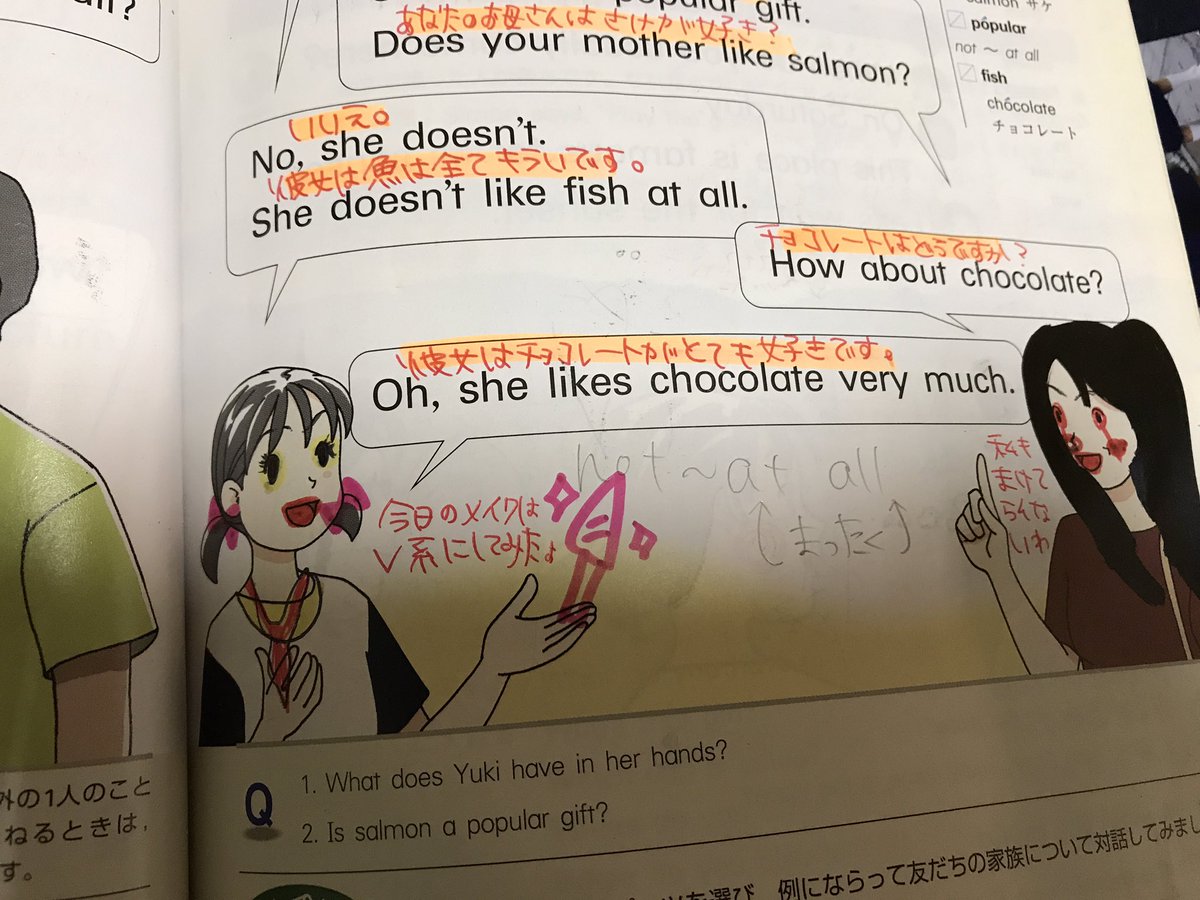 all?
gift.
salmon サケ
pópular
not ～ at all
fish
chócolate
チョコレート
あなたのお母さんは さけが好き？
Does your mother like salmon?
いいえ。
No, she doesn't.
彼女は魚は全てキライです。
She doesn't like fish at all.
チョコレートはどうですか？
How about chocolate?
彼女はチョコレートがとても好きです。
Oh, she likes chocolate very much.
not ～ at all
まったく
今日のメイクは
V系にしてみたよ
私も
まけて
らんな
いわ
Q
1. What does Yuki have in her hands?
2. Is salmon a popular gift?
外の1人のこと
ねるときは,
す。
を選び, 例にならって友だちの家族について対話してみまし